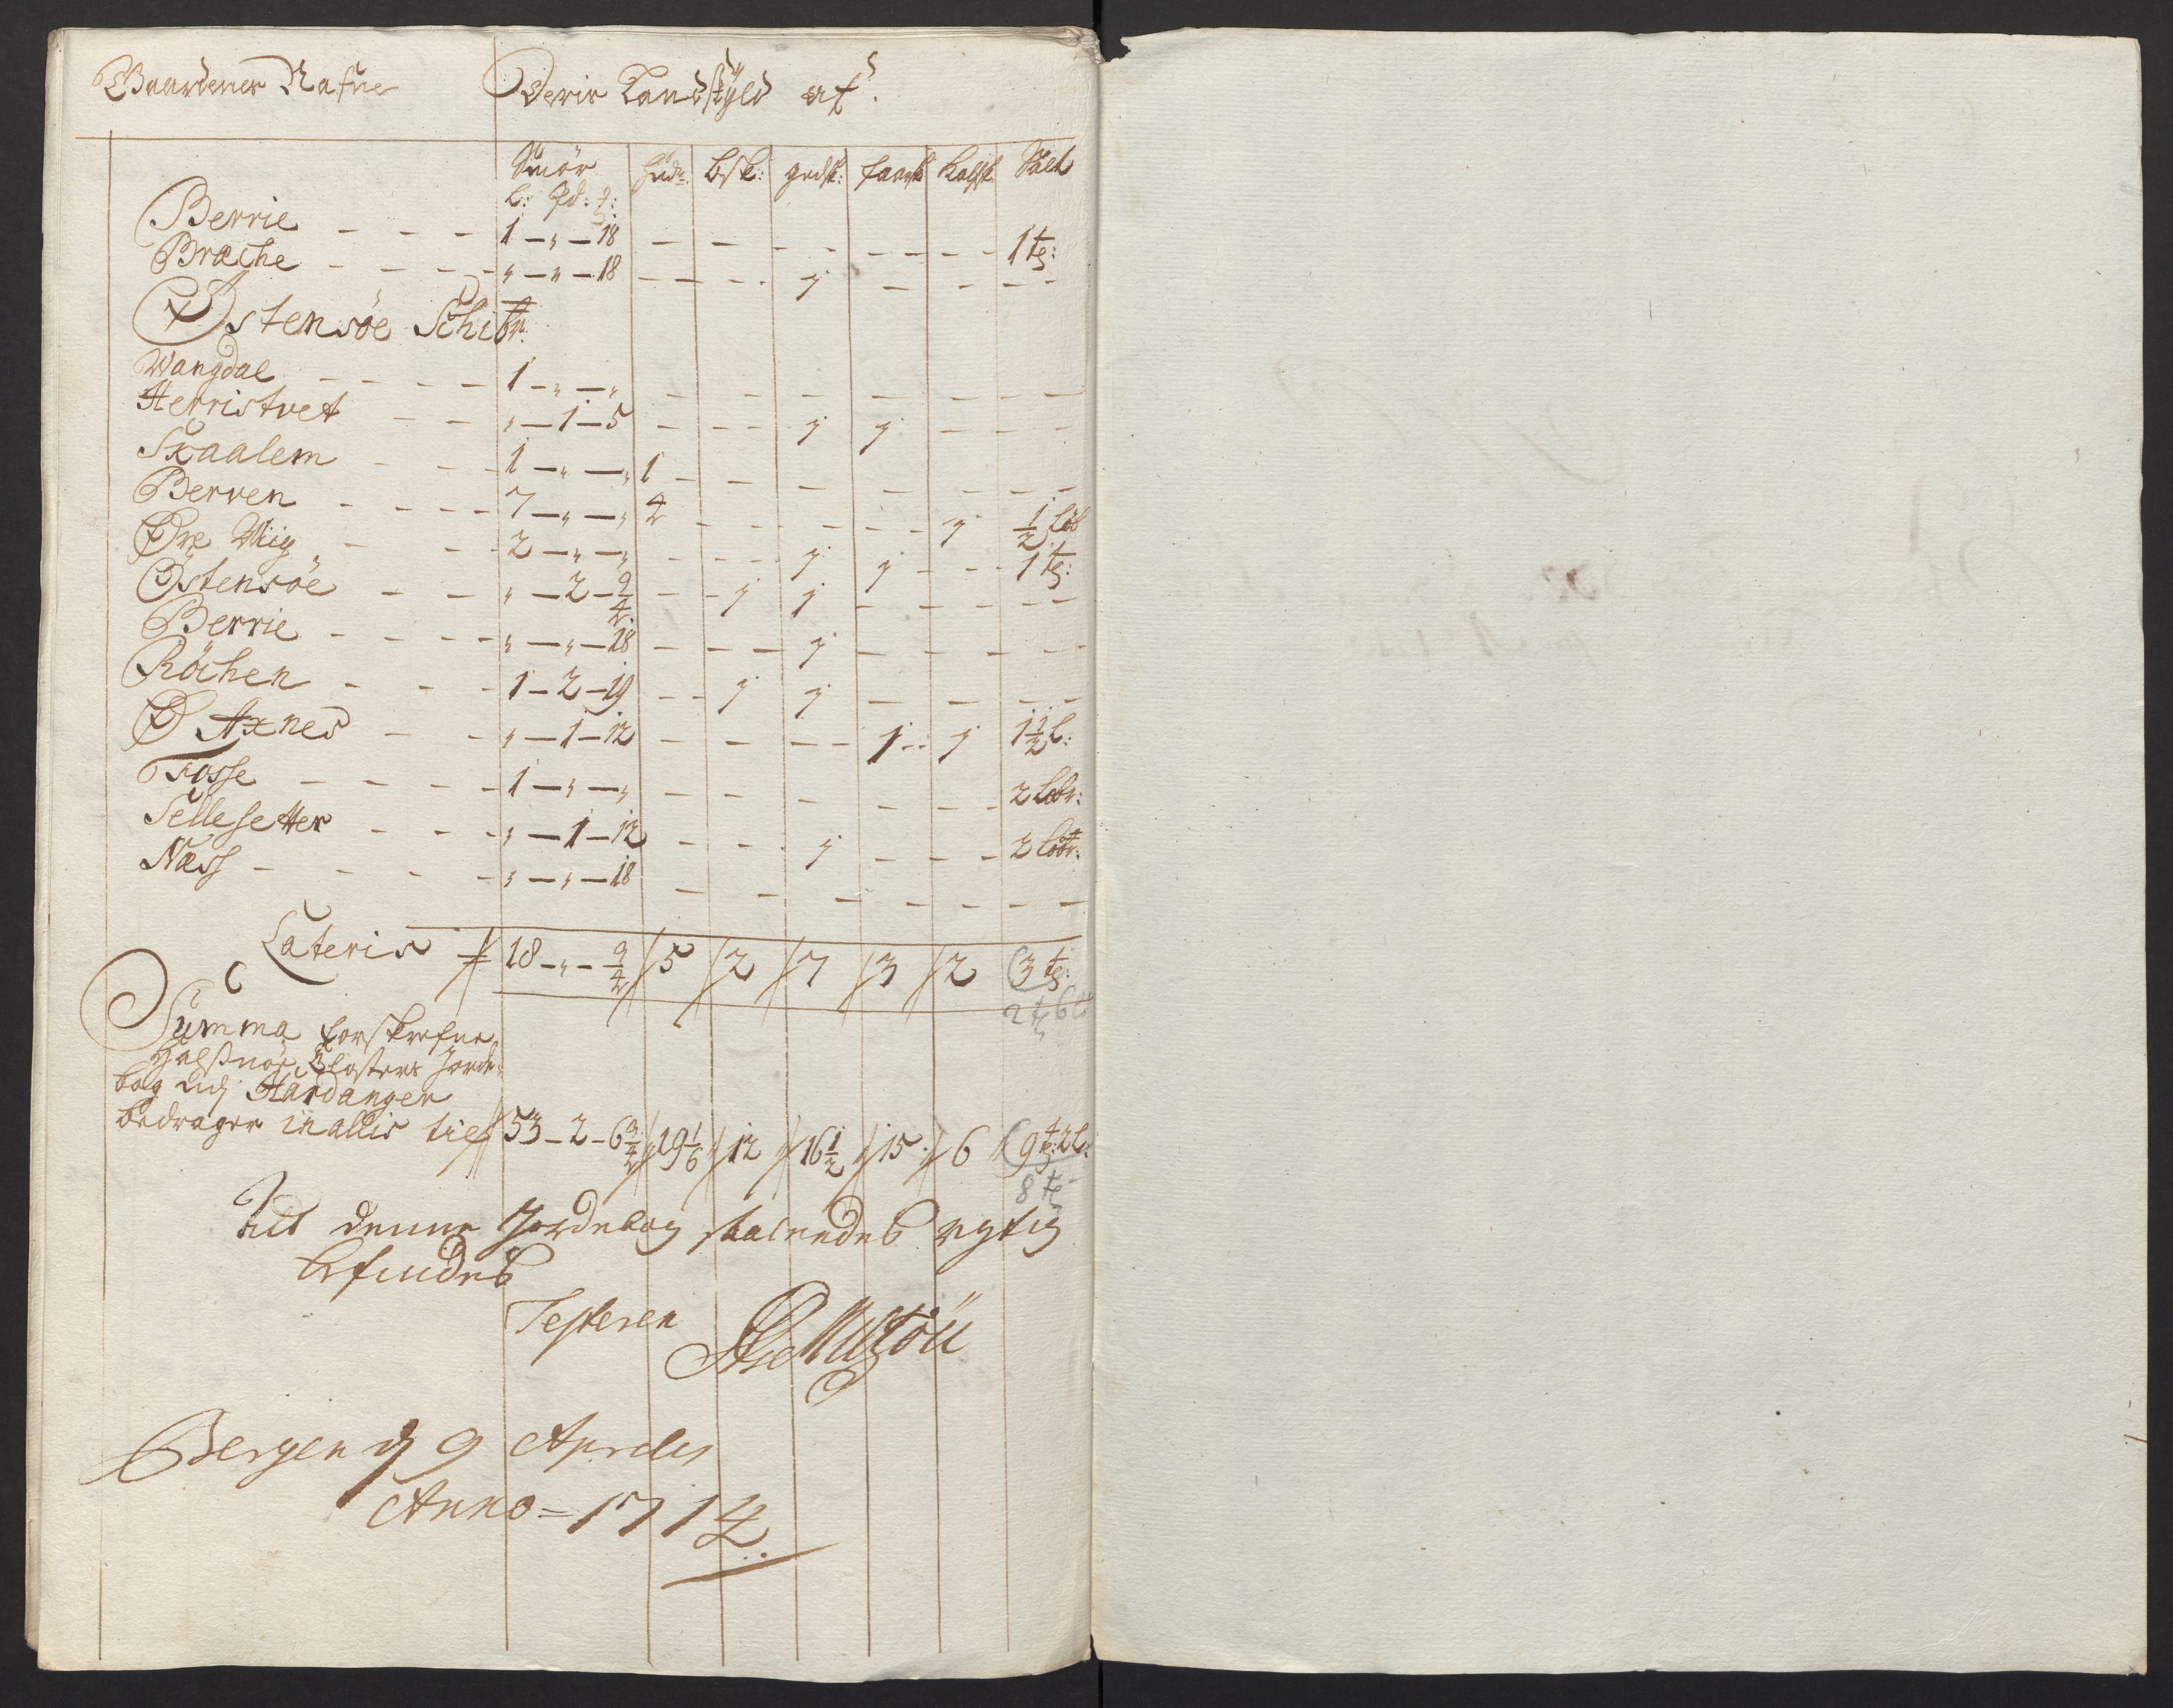 Gaardenes Nafne Deris Landskyld af
Smör Hude: bsk: gedsk: faarsk kalfsk Salt
L: Pd: ʒ:
Berrie - - - 1 - „ - 18 - - - - - - - 1 tø:
Bræche - - - - „ - „ - 18 - - - - 1 - - - -
Østensöe Schibr:
Wangdal - - - - 1 - „ - „ - - - - - - -
Herristvet - - „ - 1 - 5 - - - - 1 1 - - - -
Skaalem - - - 1 - „ - „ 1 - - - - - - -
Berven - - - - 7 - „ - „ 4 - - - - - - 1 1/2 Löb
Øre Wiig - - - 2 - „ - „ - - - - 1 1 - - - 1 tø:
Östensöe - - „ - 2 - 9/4 - - - 1 1 - - - - -
Berrie - - - - „ - „ - 18 - - - 1 - - - - -
Röchen - - - 1 - 2 - 19 - - 1 1 - - - -
Ø Axnes - - „ - 1 - 12 - - - - 1 - - 1 1 1/2 L:
Fosse - - - - 1 - „ - „ - - - - - - 2 Löbr:
Sellesetter - - - „ - 1 - 12 - - - 1 - - - 2 Löbr:
Næss - - - - „ - „ - 18 - - - - - - -
Lateris 18 - „ - 9/4 5 2 7 3 2 3 tø:
2 tø 6 L
Summa forskrefne
Halsnöe Closters Jorde
bog udj Hardanger
bedrager in allis til 53 - 2 - 6 3/4 19 1/6 12 16 1/2 15 6 9 tø: 2 L:
8 tø
At denne Jordebog saaledes rigtig
befindes
Testerer
Bergen d 9 Aprilis
Anno = 1714